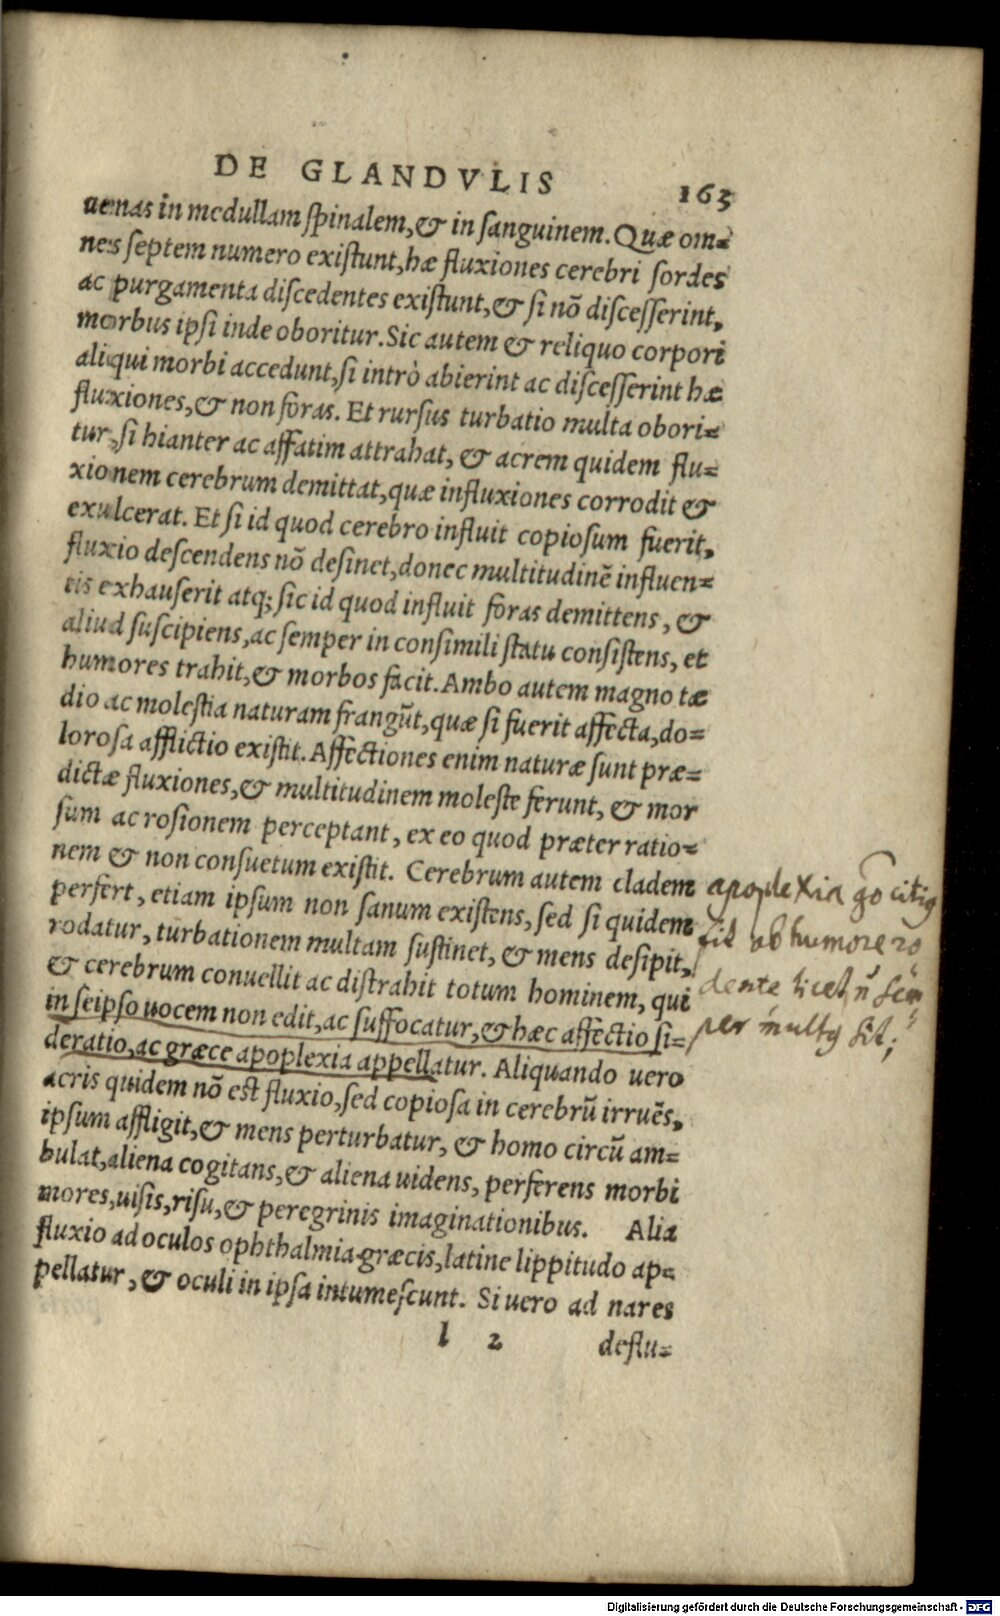 DE GLANDVLIS 163
uenas in medullam spinalem, & in sanguinem. Quæ om=
nes septem numero existunt, hæ fluxiones cerebri sordes
ac purgamenta discedentes existunt, & si nõ discesserint,
morbus ipsi inde oboritur. Sic autem & reliquo corpori
aliqui morbi accedunt, si intrò abierint ac discesserint hæ
fluxiones, & non foras. Et rursus turbatio multa obori=
tur, si hianter ac affatim attrahat, & acrem quidem flu=
xionem cerebrum demittat, quæ influxiones corrodit &
exulcerat. Et si id quod cerebro influit copiosum fuerit,
fluxio descendens nõ desinet, donec multitudinẽ influen=
tis exhauserit atq; sic id quod influit foras demittens, &
aliud suscipiens, ac semper in consimili statu consistens, et
humores trahit, & morbos facit. Ambo autem magno tæ
dio ac molestia naturam frangũt, quæ si fuerit affecta, do=
lorosa afflictio existit. Affectiones enim naturæ sunt præ=
dictæ fluxiones, & multitudinem moleste ferunt, & mor
sum ac rosionem perceptant, ex eo quod præter ratio=
nem & non consuetum existit. Cerebrum autem cladem
perfert, etiam ipsum non sanum existens, sed si quidem
rodatur, turbationem multam sustinet, & mens desipit,
& cerebrum conuellit ac distrahit totum hominem, qui
in seipso uocem non edit, ac suffocatur, & hæc affectio si=
deratio, ac græce apoplexia appellatur. Aliquando uero
acris quidem nõ est fluxio, sed copiosa in cerebrũ irruẽs,
ipsum affligit, & mens perturbatur, & homo circũ am=
bulat, aliena cogitans, & aliena uidens, perferens morbi
mores, uisis, risu, & peregrinis imaginationibus. Alia
fluxio ad oculos ophthalmia græcis, latine lippitudo ap=
pellatur, & oculi in ipsa intumescunt. Si uero ad nares
l 2 deflu=
apoplexia
fit ab humore ro
dente licet
per multq sit;
Digitalisierung gefördert durch die Deutsche Forschungsgemeinschaft - DFG